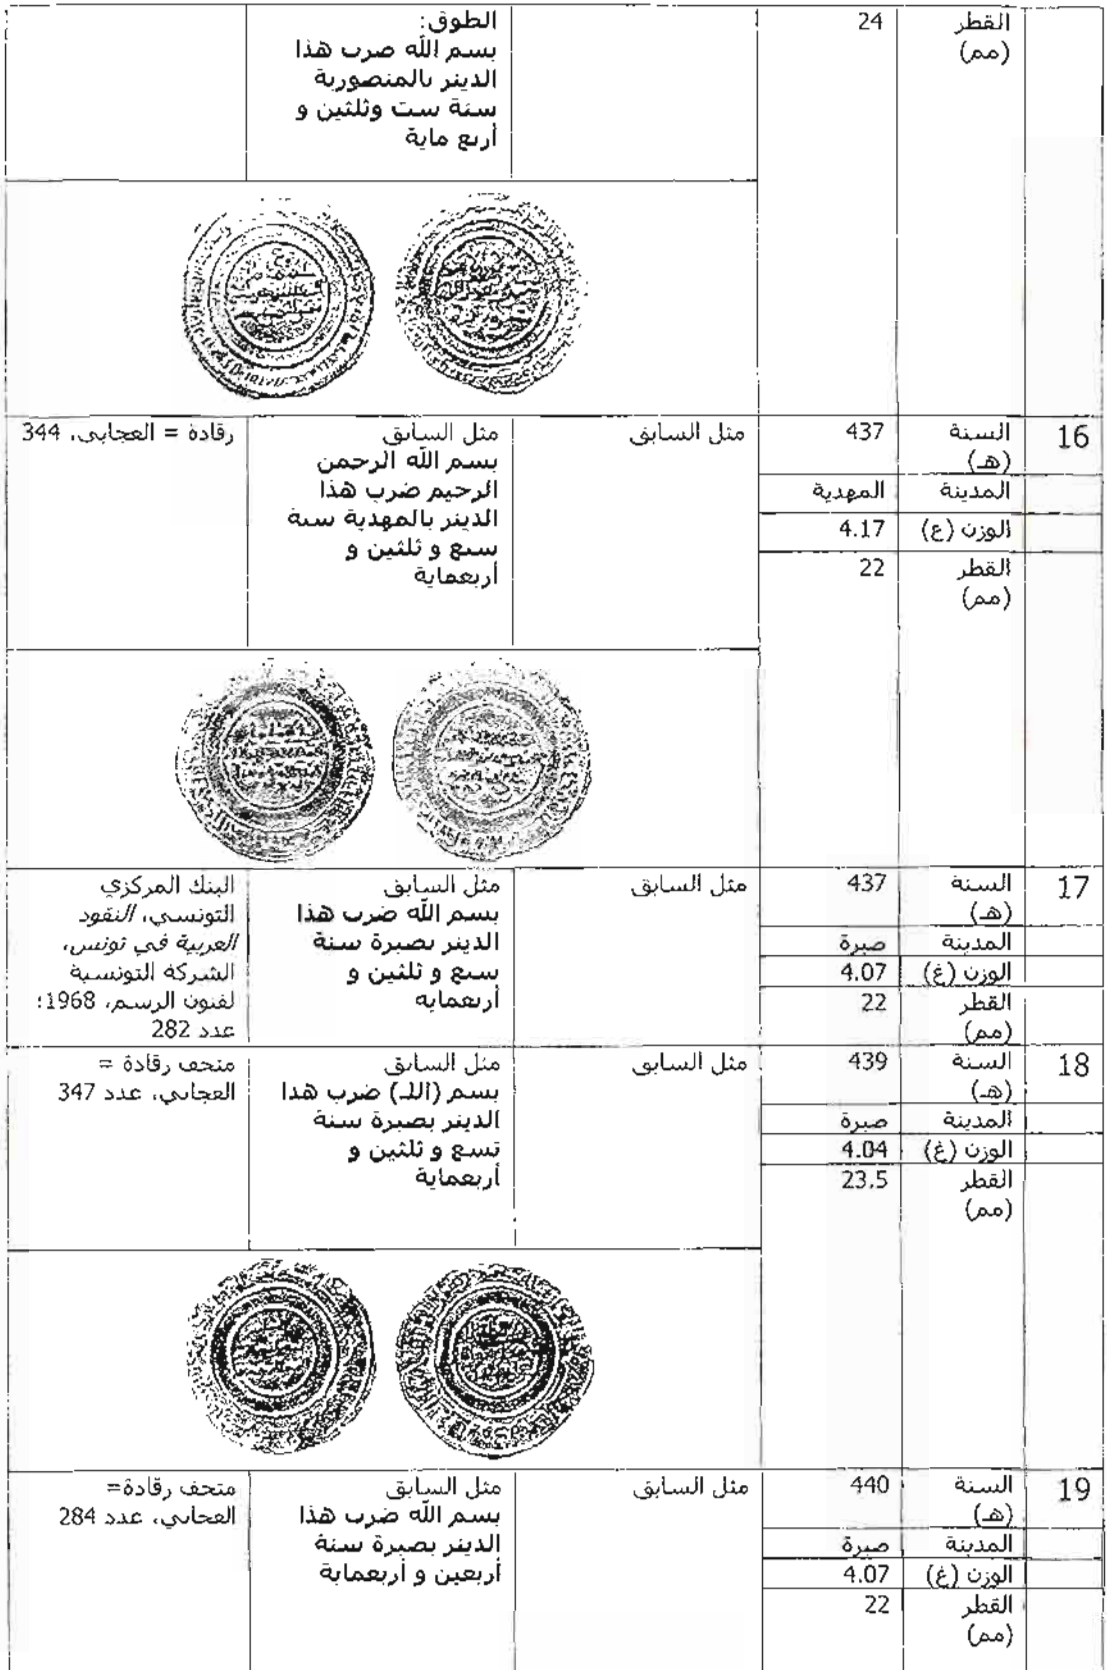 القطر
(مم)
24
الطوق:
بسم الله ضرب هذا
الدينر بالمنصورية
سنة ست وثلثين و
أربع ماية
16
السنة
(هـ)
437
مثل السابق
مثل السابق
بسم الله الرحمن
الرحيم ضرب هذا
الدينر بالمهدية سنة
سبع و ثلثين و
أربعماية
رقادة = العجابي، 344
المدينة
المهدية
الوزن (ع)
4.17
القطر
(مم)
22
17
السنة
(هـ)
437
مثل السابق
مثل السابق
بسم الله ضرب هذا
الدينر بصبرة سنة
سبع و ثلثين و
أربعمايه
البنك المركزي
التونسي، النقود
العربية في تونس،
الشركة التونسية
لفنون الرسم، 1968؛
عدد 282
المدينة
صبرة
الوزن (غ)
4.07
القطر
(مم)
22
18
السنة
(هـ)
439
مثل السابق
مثل السابق
بسم (اللـ) ضرب هذا
الدينر بصبرة سنة
تسع و ثلثين و
أربعماية
متحف رقادة =
العجابي، عدد 347
المدينة
صبرة
الوزن (غ)
4.04
القطر
(مم)
23.5
19
السنة
(هـ)
440
مثل السابق
مثل السابق
بسم الله ضرب هذا
الدينر بصبرة سنة
أربعين و أربعماية
متحف رقادة=
العجابي، عدد 284
المدينة
صبرة
الوزن (غ)
4.07
القطر
(مم)
22